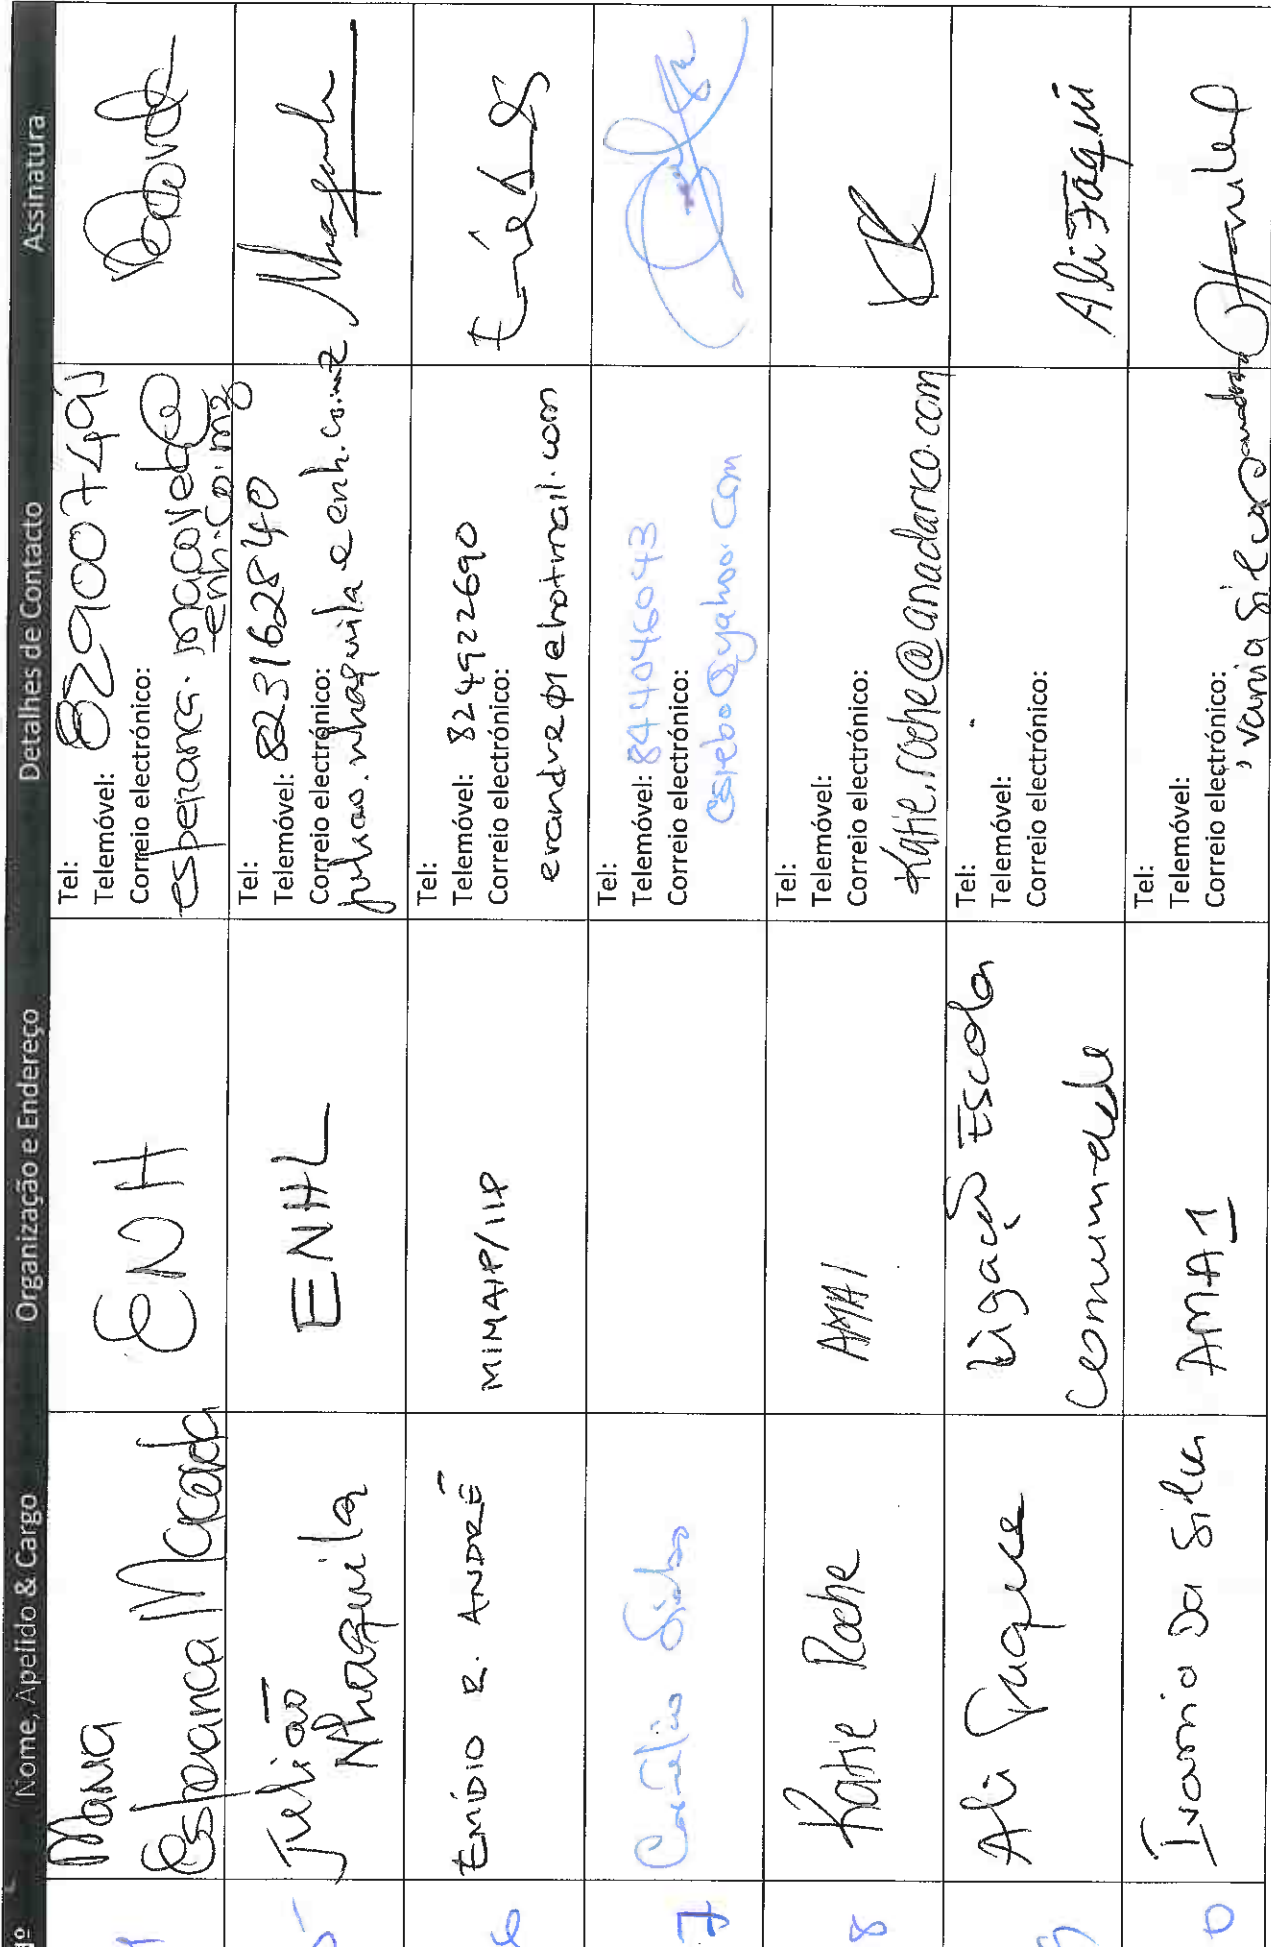 Nº Nome, Apelido & Cargo Organização e Endereço Detalhes de Contacto Assinatura
Maria
Esperança
ENH
Tel:
Telemóvel: 82900749
Correio electrónico:
esperanca.macovela@
enh.co.mz
5
Julião
Nhaquila
ENHL
Tel:
Telemóvel: 823162840
Correio electrónico:
juliao.nhaquila@enh.co.mz
6
EMÍDIO R. ANDRÉ
MIMAIP/IIP
Tel:
Telemóvel: 824922690
Correio electrónico:
erandre01@hotmail.com
7
Tel:
Telemóvel: 844046043
Correio electrónico:
csiebo@yahoo.com
8
Katie Roche
AMA1
Tel:
Telemóvel:
Correio electrónico:
Katie.roche@anadarko.com
KR
Ali Faque
Ligação Escola
Comunidade
Tel:
Telemóvel:
Correio electrónico:
Ali Faqui
0
Ivania Da Silva
AMA1
Tel:
Telemóvel:
Correio electrónico: